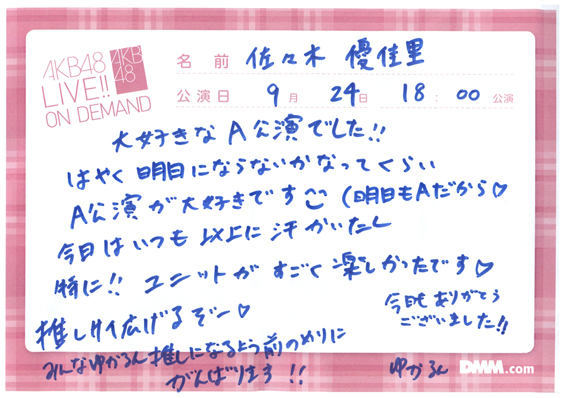 AKB48
LIVE!!
ON DEMAND
AKB
48
名前 佐々木 優佳里
公演日 9月 24日 18:00 公演
大好きなA公演でした!!
はやく明日にならないかなってくらい
A公演が大好きです (明日もAだから♡
今日はいつも以上に汗かいたし
特に!! ユニットがすごく楽しかったです♡
推しサイ広げるぞー♡
今日もありがとう
ございました!!
みんなゆかるん推しになるよう前のめりに
がんばります!!
ゆかるん
DMM.com